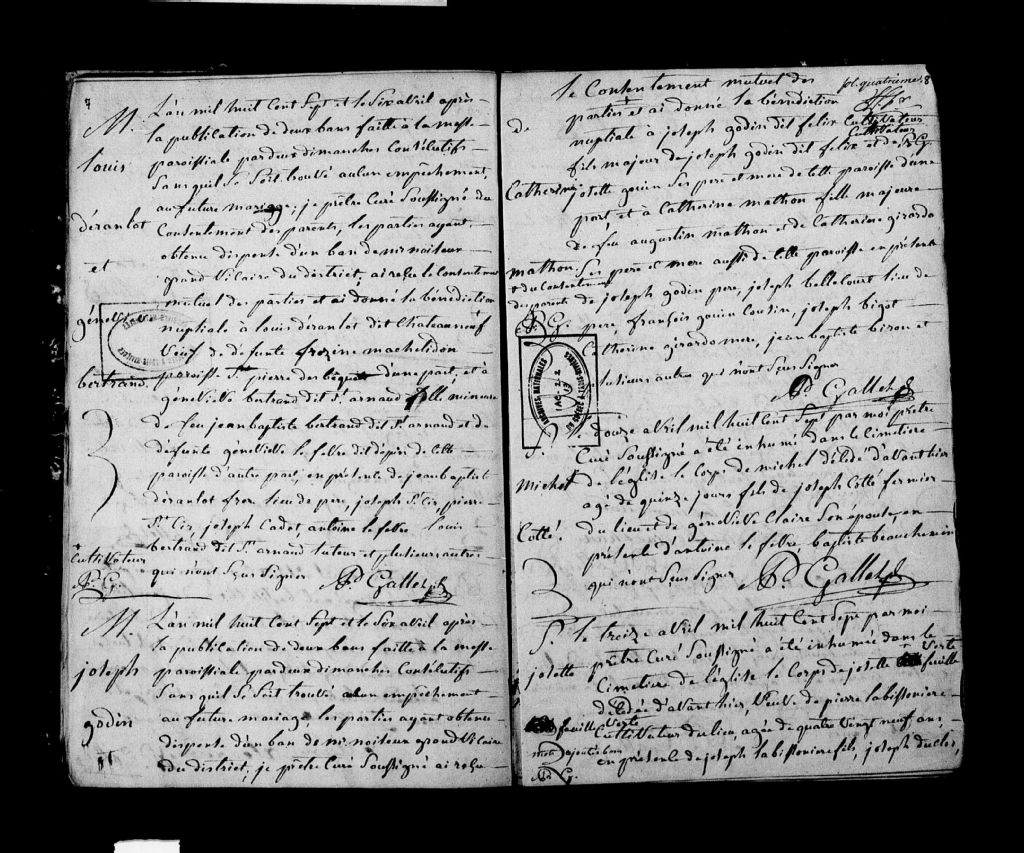 7
M.
louis
déranlot
et
géneviève
bertrand.
3
Cultivateur
P. G.
L'an mil huit Cent Sept et le Six avril après
la publication de deux bans faitte à la messe
paroissiale par deux dimanches Consécutifs
Sans quil Se Soit trouvé aucun empêchement
au future mariage; je prêtre Curé Soussigné du
Consentement des parents, les parties ayant
obtenu dispense d'un ban de
grand Vicaire du district, ai reçu le Consentement
mutuel des parties et ai donné la bénédiction
nuptiale à louis déranlot dit Chateauneuf
Veuf de défunte frozine machelidon
paroisse St. pierre des d'une part; et à
géneviève bertrand dit St. arnaud fille mineure
de feu jean baptiste bertrand dit St. arnaud et de
défunte géneviève le febvre dit dépin de cette
paroisse d'autre part, en présence de jean baptiste
déranlot frere tieu de pere, joseph St. Cir, pierre
St. Cir, joseph Cadot, antoine le febvre louis
bertrand dit St. arnaud tuteur et plusieurs autres
qui n'ont Sçus Signer Gallet
M.
joseph
godin
et
L'an mil huit Cent Sept et le Six avril après
la publication de deux bans faitte à la messe
paroissiale par deux dimanches Consécutifs
Sans quil Se Soit trouvé aucun empêchement
au future mariage, les parties ayant obtenu
dispense d'un ban de grand Vicaire
du district; je prêtre Curé Soussigné ai reçu
fol. quatrieme. 8
de
Catherine
mathon
et du Consentement
des parents
P. G.
le Consentement mutuel des
parties et ai donné la bénédiction
nuptiale à joseph godin dit felix Cultivateur
Cultivateur
P. G.
fils majeur de joseph godin dit felix et de
josette gouin Ses pere et mere de cette paroisse d'une
part et à Catherine mathon fille majeure
de feu augustin mathon et de Catherine girardo
Ses pere et mere aussi de cette paroisse en présence
de joseph godin pere, joseph bellecourt tieu de
pere, françois gouin Cousin, joseph bigot
Catherine girardo mere, jean baptiste biron et
plusieurs autres qui n'ont Sçus Signer
Gallet
ARCHIVES NATIONALES
S.
Michel
Collé.
3
le douze avril mil huit Cent Sept par moi prêtre
Curé Soussigné a été inhumé dans le Cimetiere
de l'église le Corps de michel décédé d'avant hier
agé de quinze jours fils de joseph Collé fermier
du lieu et de géneviève Claire Son épouse, en
présence d'antoine le febvre, baptiste beauchemin
qui n'ont Sçus Signer Gallet
S.
josette
feuille
Verte
mots ajoutés bons
P. G.
le treize avril mil huit Cent Sept par moi
prêtre Curé Soussigné a été inhumée dans le
Cimetiere de l'église le Corps de josette Verte
feuille
décédée d'avant hier, Veuve de pierre labissoniere
Cultivateur du lieu, agée de quatre Vingt neuf ans,
en présence de joseph labissoniere fils, joseph duclos,